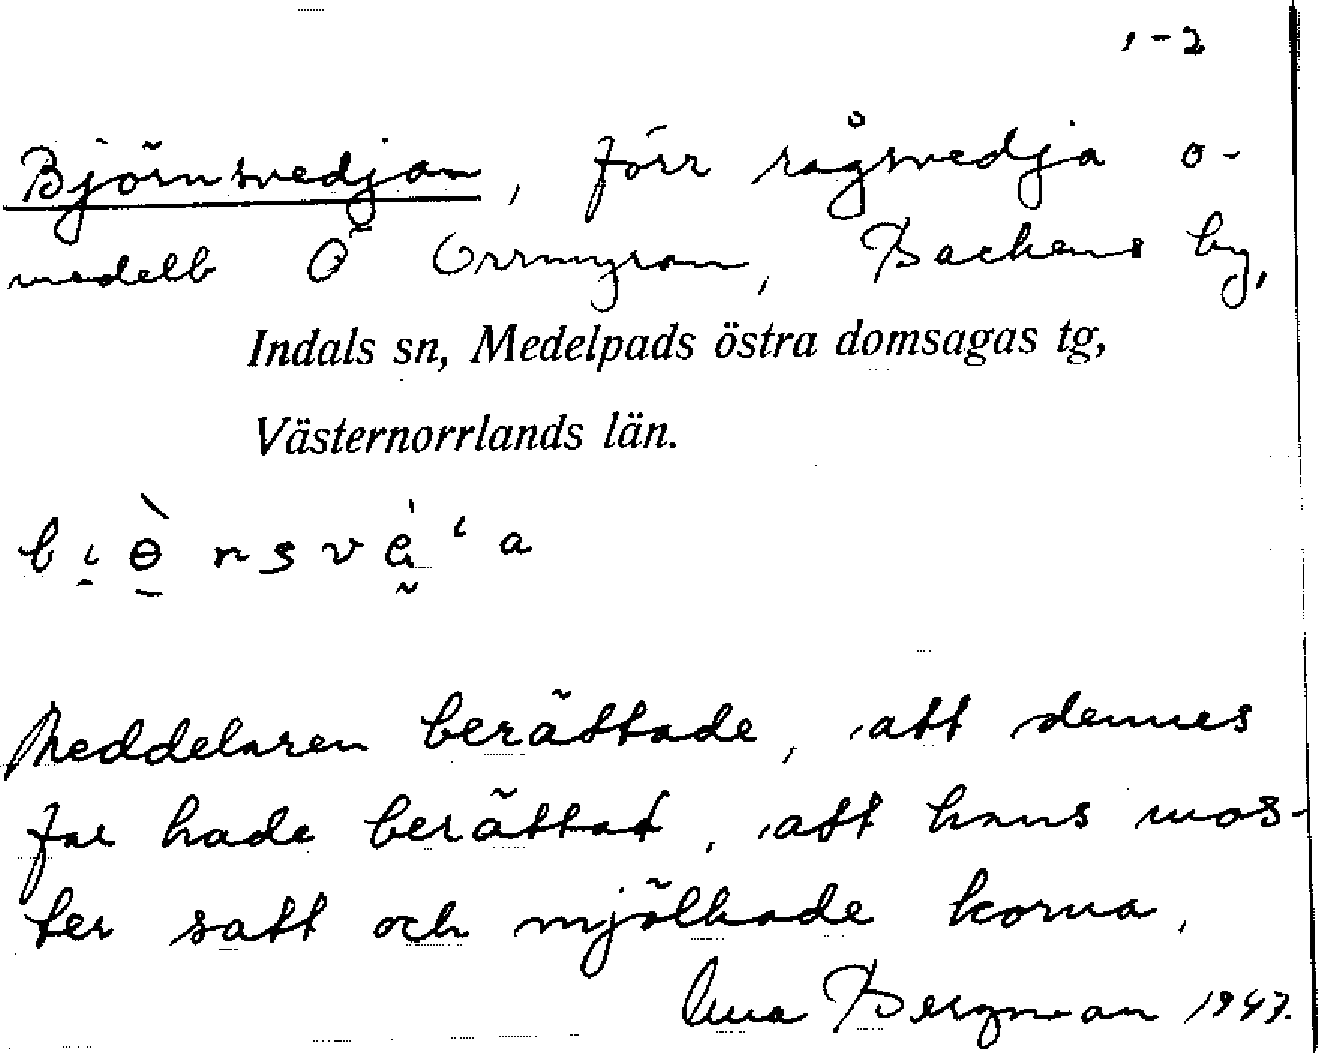 1-2
Björnsvedjan, förr rågsvedja o-
medelb Ö Orrmyran, Backens by,
Indals sn, Medelpads östra domsagas tg,
Västernorrlands län.
Meddelaren berättade, att dennes
far hade berättat, att hans mos-
ter satt och mjölkade korna,
Bergman 1947.